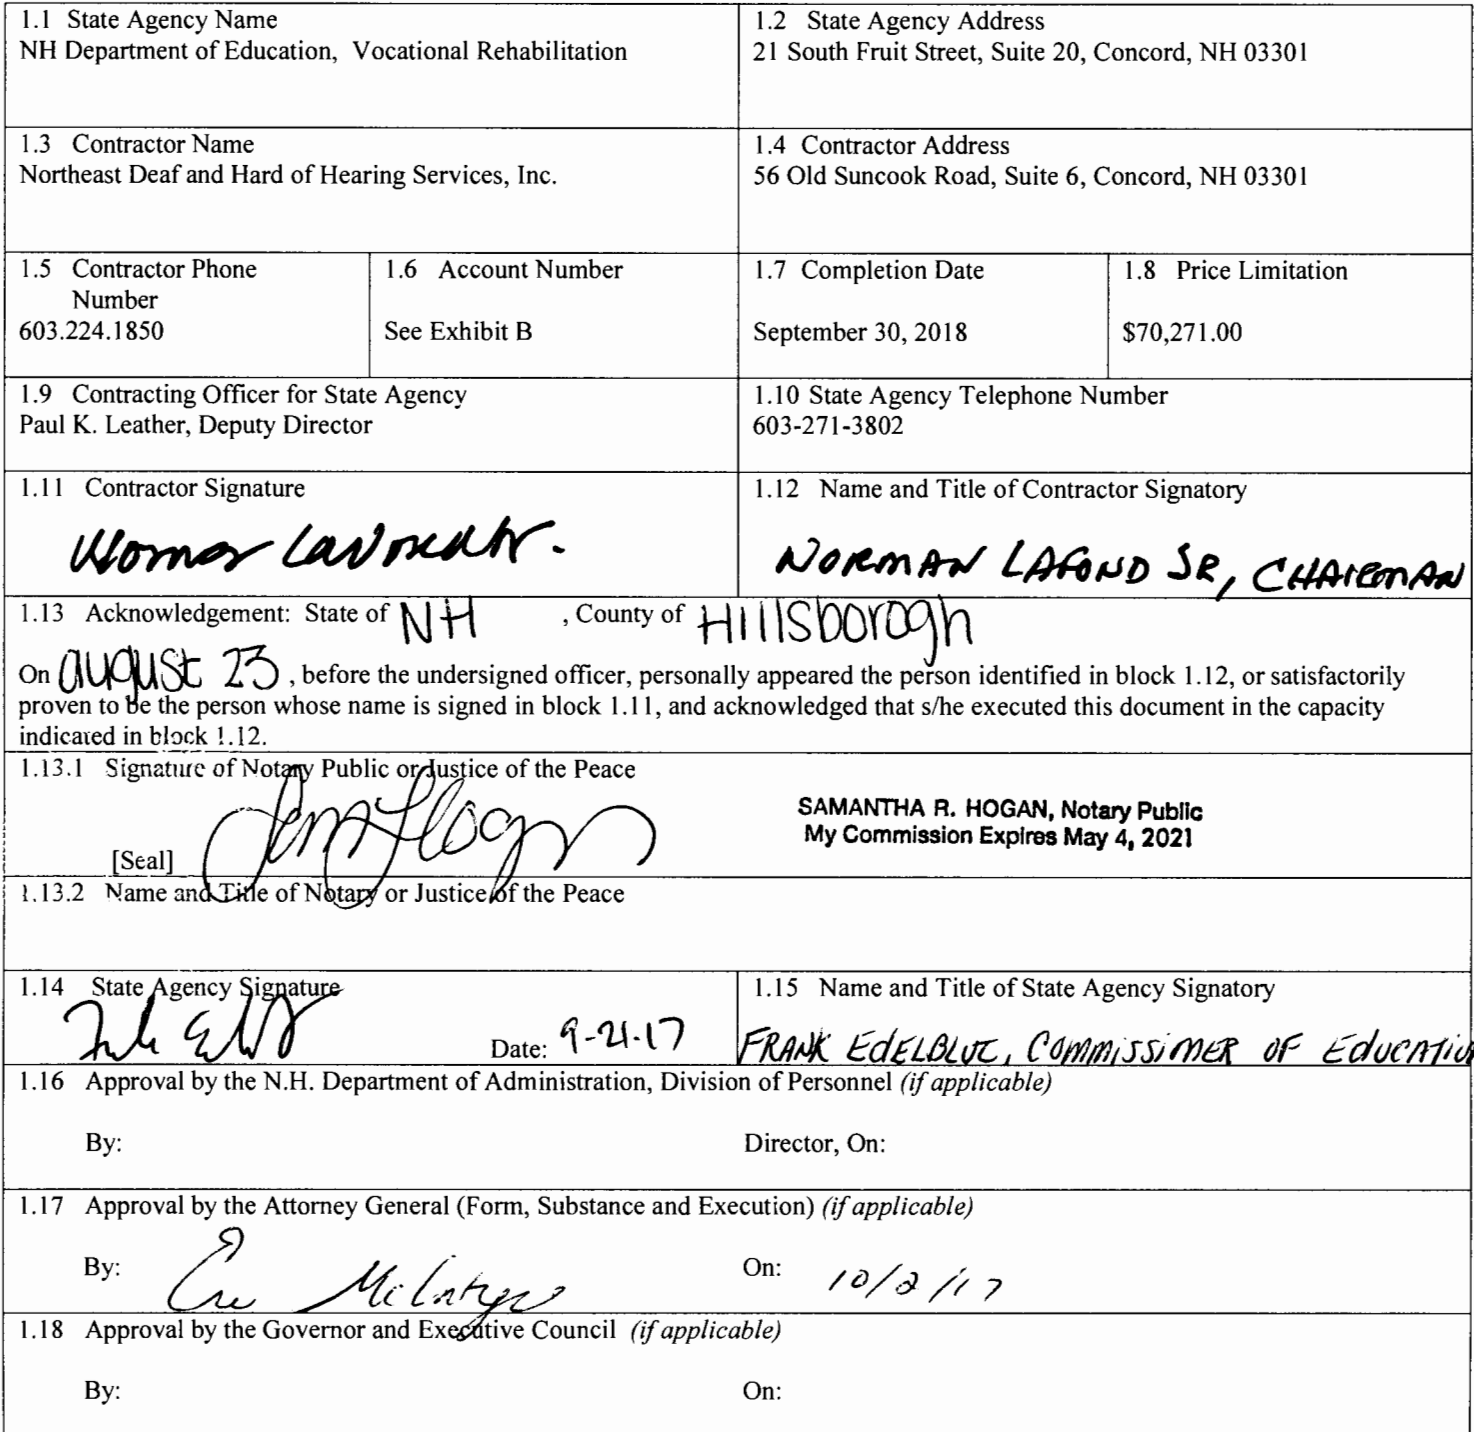 1.1 State Agency Name
NH Department of Education, Vocational Rehabilitation
1.2 State Agency Address
21 South Fruit Street, Suite 20, Concord, NH 03301
1.3 Contractor Name
Northeast Deaf and Hard of Hearing Services, Inc.
1.4 Contractor Address
56 Old Suncook Road, Suite 6, Concord, NH 03301
1.5 Contractor Phone
Number
603.224.1850
1.6 Account Number
See Exhibit B
1.7 Completion Date
September 30, 2018
1.8 Price Limitation
$70,271.00
1.9 Contracting Officer for State Agency
Paul K. Leather, Deputy Director
1.10 State Agency Telephone Number
603-271-3802
1.11 Contractor Signature
1.12 Name and Title of Contractor Signatory
NORMAN LAFOND SR, CHAIRMAN
1.13 Acknowledgement: State of NH , County of Hillsborogh
On august 23 , before the undersigned officer, personally appeared the person identified in block 1.12, or satisfactorily
proven to be the person whose name is signed in block 1.11, and acknowledged that s/he executed this document in the capacity
indicated in block 1.12.
1.13.1 Signature of Notary Public or Justice of the Peace
SAMANTHA R. HOGAN, Notary Public
My Commission Expires May 4, 2021
[Seal]
1.13.2 Name and Title of Notary or Justice of the Peace
1.14 State Agency Signature
Date: 9-21-17
1.15 Name and Title of State Agency Signatory
FRANK EDELBLUT, COMMISSIONER OF EDUCATION
1.16 Approval by the N.H. Department of Administration, Division of Personnel (if applicable)
By: Director, On:
1.17 Approval by the Attorney General (Form, Substance and Execution) (if applicable)
By: McIntyre On: 10/2/17
1.18 Approval by the Governor and Executive Council (if applicable)
By: On: